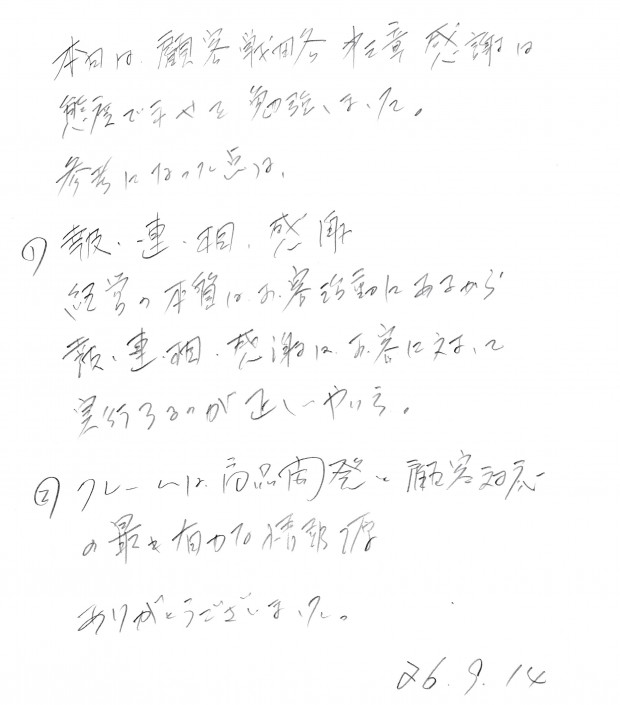 本日は、顧客戦略 九章 感謝は
態度で示せを勉強しました。
参考になった点は、
① 報・連・相・感謝
経営の本質はお客活動にあるから
報・連・相・感謝は、お客に対して
実行するのが正しいやり方。
② クレームは、商品開発と顧客対応
の最も有力な情報源
ありがとうございました。
26.9.14